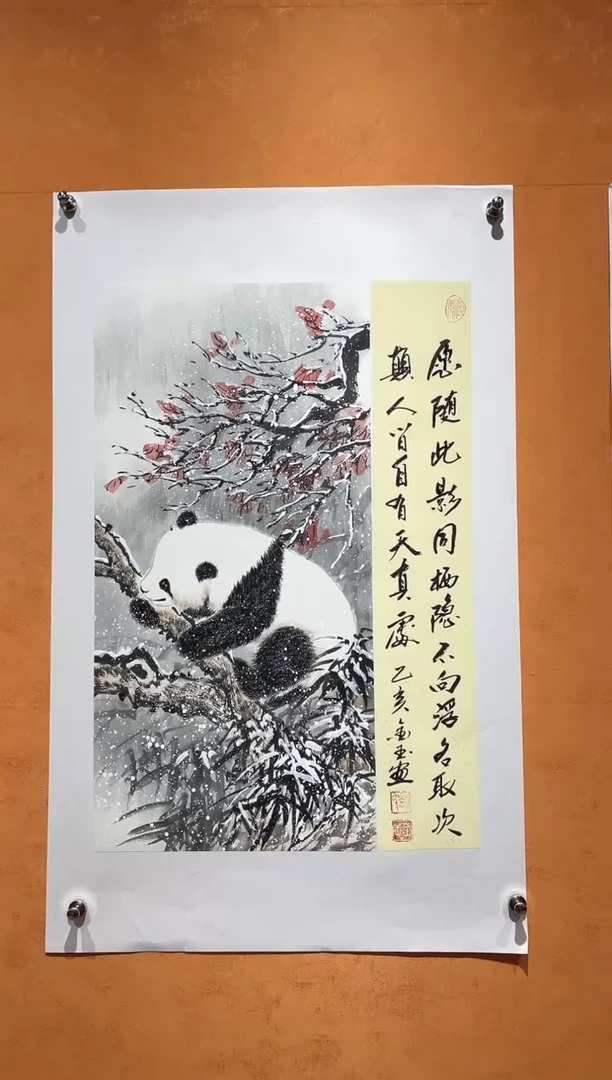 愿随此影同栖隐不向浮名取次
顛人皆自有天真處 乙亥金玉画